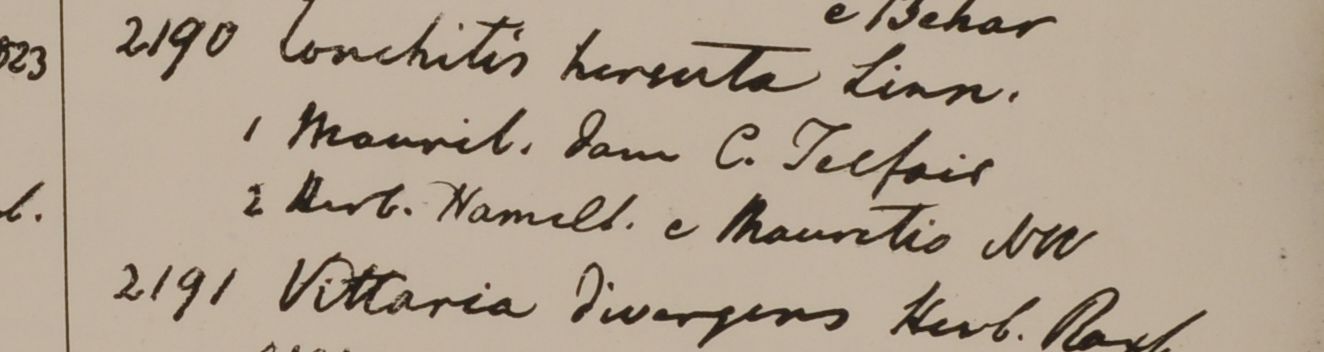 e Behar
2190 Lonchitis hirsuta Linn.
1 Maurit. Dam C. Telfair
2 Herb. Hamilt. e Mauritio NW
2191 Vittaria divergens Herb. Roxb